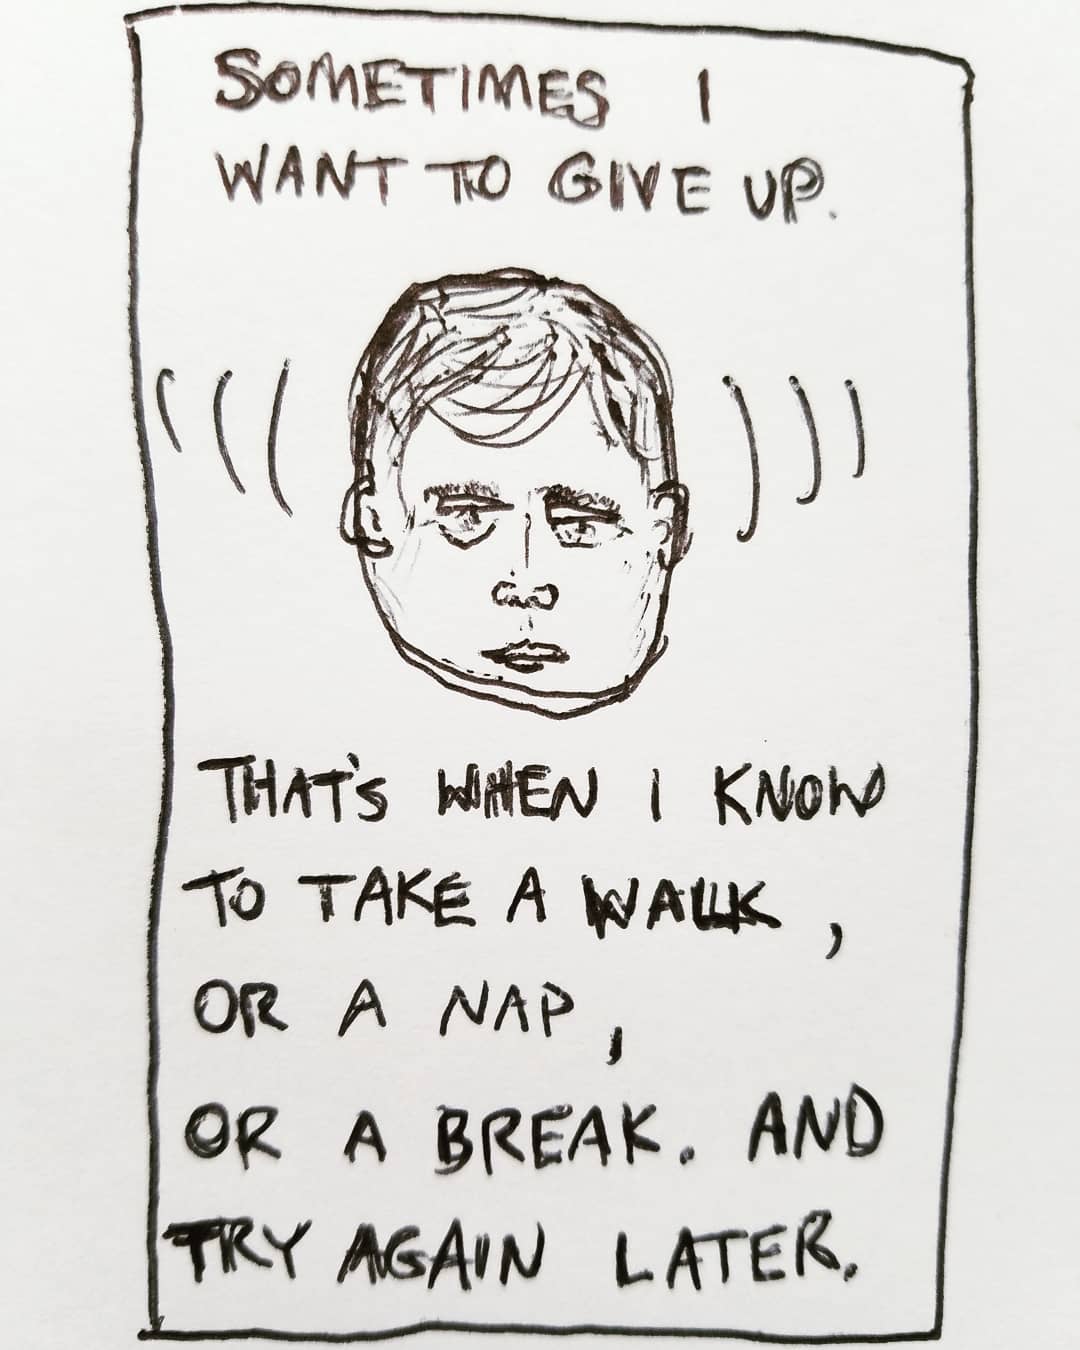 SOMETIMES I
WANT TO GIVE UP.
THAT'S WHEN I KNOW
TO TAKE A WALK,
OR A NAP,
OR A BREAK. AND
TRY AGAIN LATER.